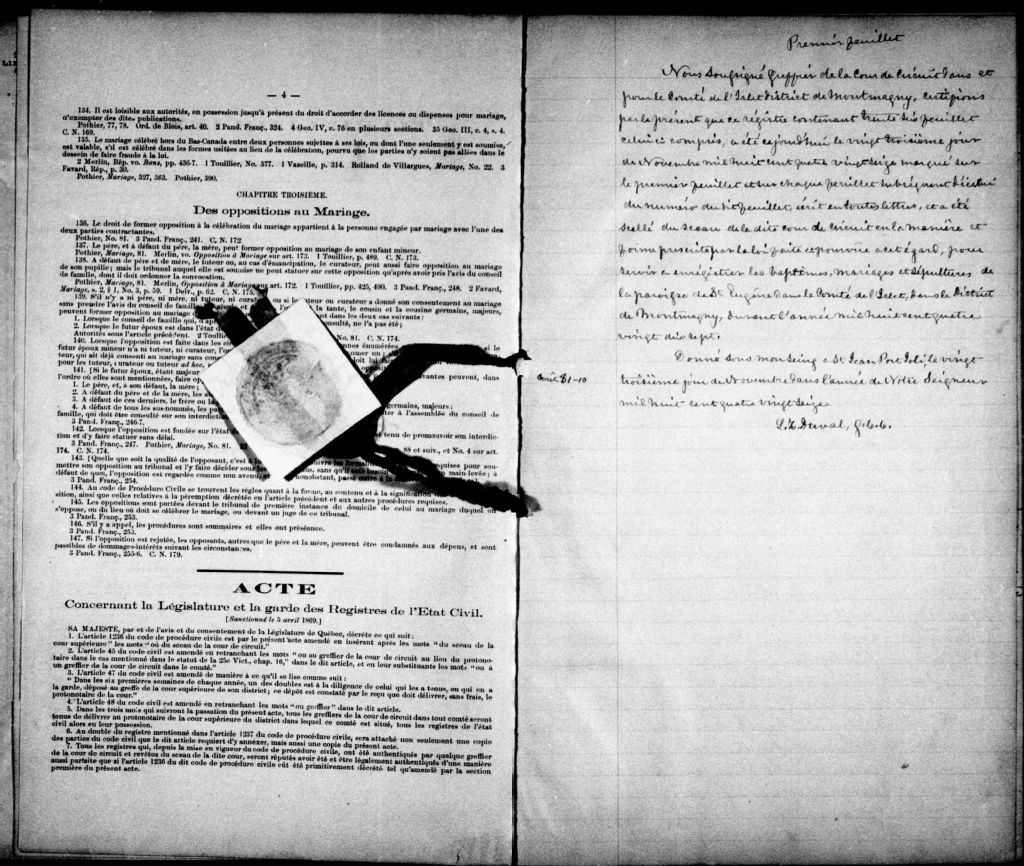 — 4 —
134. Il est loisible aux autorités, en possession jusqu'à présent du droit d'accorder des licences ou dispenses pour mariage,
d'exempter des dites publications.
Pothier, 77, 78. Ord. de Blois, art. 40. 2 Pand. Franç., 324. 4 Geo. IV, c. 76 en plusieurs sections. 35 Geo. III, c. 4, s. 4.
C. N. 169.
135. Le mariage célébré hors du Bas-Canada entre deux personnes sujettes à ses lois, ou dont l'une seulement y est soumise,
est valable, s'il est célébré dans les formes usitées au lieu de la célébration, pourvu que les parties n'y soient pas allées dans le
dessein de faire fraude à la loi.
2 Merlin, Rép. vo. Bans, pp. 436-7. 1 Touillier, No. 577. 1 Vazeille, p. 314. Rolland de Villargues, Mariage, No. 22. 3
Favard, Rép., p. 30.
Pothier, Mariage, 327, 363. Pothier, 390.
CHAPITRE TROISIÈME.
Des oppositions au Mariage.
136. Le droit de former opposition à la célébration du mariage appartient à la personne engagée par mariage avec l'une des
deux parties contractantes.
Pothier, No. 81. 3 Pand. Franç., 241. C. N. 172
137. Le père, et à défaut du père, la mère, peut former opposition au mariage de son enfant mineur.
Pothier, Mariage, 81. Merlin, vo. Opposition à Mariage sur art. 173. 1 Touillier, p. 489. C. N. 173.
138. A défaut de père et de mère, le tuteur ou, au cas d'émancipation, le curateur, peut aussi faire opposition au mariage
de son pupille; mais le tribunal auquel elle est soumise ne peut statuer sur cette opposition qu'après avoir pris l'avis du conseil
de famille, dont il doit ordonner la convocation.
Pothier, Mariage, 81. Merlin, Opposition à Mariage sur art. 172. 1 Touillier, pp. 425, 490. 3 Pand. Franç., 248. 2 Favard,
Mariage, s. 2, § 1, No. 3, p. 59. 1 Delv., p. 62. C. N. 175.
139. S'il n'y a ni père, ni mère, ni tuteur, ni curateur ou si le tuteur ou curateur a donné son consentement au mariage
sans prendre l'avis du conseil de famille, la tante, le cousin et la cousine germains, majeurs,
peuvent former opposition au mariage dans les deux cas suivants:
1. Lorsque le conseil de famille qui, d'ap consulté, ne l'a pas été;
2. Lorsque le futur époux est dans l'état de
Autorités sous l'article précédent. 2 Toulli No. 81. C. N. 174.
140. Lorsque l'opposition est faite dans les cir nnes énumérées si le
futur époux mineur n'a ni tuteur, ni curateur, l'on
teur, qui ait déjà consenti au mariage sans cons
pour les tuteur, curateur ou tuteur ad hoc,
141. [Si le futur époux, étant majeur vantes peuvent, dans
l'ordre où elles sont mentionnées, faire op
1. Le père, et, à son défaut, la mère;
2. A défaut du père et de la mère, les
3. A défaut de ces derniers, le frère ou la germains, majeurs:
4. A défaut de tous les sus-nommés, les pa à l'assemblée du conseil de
famille, qui doit être consulté sur son interdiction
3 Pand. Franç., 246-7.
142. Lorsque l'opposition est fondée sur l'état tenu de promouvoir son interdic-
tion et d'y faire statuer sans délai.
3 Pand. Franç., 247. Pothier, Mariage, No. 81. 88 et suiv., et No. 4 sur art.
174. C. N. 174.
143. [Quelle que soit la qualité de l'opposant, c'est à requises pour sou-
mettre son opposition au tribunal et l'y faire décider sous main-levée; à
défaut de quoi, l'opposition est regardée comme non avenue
3 Pand. Franç., 254.
144. Au code de Procédure Civile se trouvent les règles quant à la forme, au contenu et à la signification
sition, ainsi que celles relatives à la péremption décrétée en l'article précédent et aux autres procédures requises.
145. Les oppositions sont portées devant le tribunal de première instance du domicile de celui au mariage duquel on
s'oppose, ou du lieu où doit se célébrer le mariage, ou devant un juge de ce tribunal.
3 Pand. Franç., 253.
146. S'il y a appel, les procédures sont sommaires et elles ont préséance.
3 Pand. Franç., 253.
147. Si l'opposition est rejetée, les opposants, autres que le père et la mère, peuvent être condamnés aux dépens, et sont
passibles de dommages-intérêts suivant les circonstances.
3 Pand. Franç., 255-6. C. N. 179.
ACTE
Concernant la Législature et la garde des Registres de l'Etat Civil.
[Sanctionné le 5 avril 1869.]
SA MAJESTÉ, par et de l'avis et du consentement de la Législature de Québec, décrète ce qui suit:
1. L'article 1236 du code de procédure civile est par le présent acte amendé en insérant après les mots "du sceau de la
cour supérieure" les mots "ou du sceau de la cour de circuit."
2. L'article 45 du code civil est amendé en retranchant les mots "ou au greffier de la cour de circuit au lieu du protono-
taire dans le cas mentionné dans le statut de la 25e Vict., chap. 16," dans le dit article, et en leur substituant les mots "ou à
un greffier de la cour de circuit dans le comté."
3. L'article 47 du code civil est amendé de manière à ce qu'il se lise comme suit:
"Dans les six premières semaines de chaque année, un des doubles est à la diligence de celui qui les a tenus, ou qui en a
la garde, déposé au greffe de la cour supérieure de son district; ce dépôt est constaté par le reçu que doit délivrer, sans frais, le
protonotaire de la cour."
4. L'article 48 du code civil est amendé en retranchant les mots "ou greffier" dans le dit article.
5. Dans les trois mois qui suivront la passation du présent acte, tous les greffiers de la cour de circuit dans tout comté seront
tenus de délivrer au protonotaire de la cour supérieure du district dans lequel ce comté est situé, tous les registres de l'état
civil alors en leur possession.
6. Au double du registre mentionné dans l'article 1237 du code de procédure civile, sera attaché non seulement une copie
des parties du code civil que le dit article requiert d'y annexer, mais aussi une copie du présent acte.
7. Tous les registres qui, depuis la mise en vigueur du code de procédure civile, ont été authentiqués par quelque greffier
de la cour de circuit et revêtus du sceau de la dite cour, seront réputés avoir été et être légalement authentiqués d'une manière
aussi parfaite que si l'article 1236 du dit code de procédure civile eût été primitivement décrété tel qu'amendé par la section
première du présent acte.
Premier feuillet
Nous Soussigné Greffier de la Cour de Circuit dans et
pour le Comté de l'Islet district de Montmagny, certifions
par le présent que ce registre contenant trente six feuillet
celui ci compris, a été ce jourd'hui le vingt troisième jour
de Novembre mil huit cent quatre vingt seize marqué sur
le premier feuillet et sur chaque feuillet subséquent d'icelui
du numéro du dit feuillet, écrit en toutes lettres, et a été
scellé du sceau de la dite cour de Circuit en la manière et
forme prescrite par la loi faite et pourvue a cet égard, pour
servir a enregistrer les baptêmes, mariages et sépultures de
la paroisse de St Eugène dans le Comté de l'Islet, dans le District
de Montmagny, durant l'année mil huit cent quatre
vingt dix sept.
Donné sous mon seing a St Jean Port Joli, le vingt
troisième jour de Novembre dans l'année de Notre Seigneur
mil huit cent quatre vingt seize
L. Z. Duval, g.c.c.